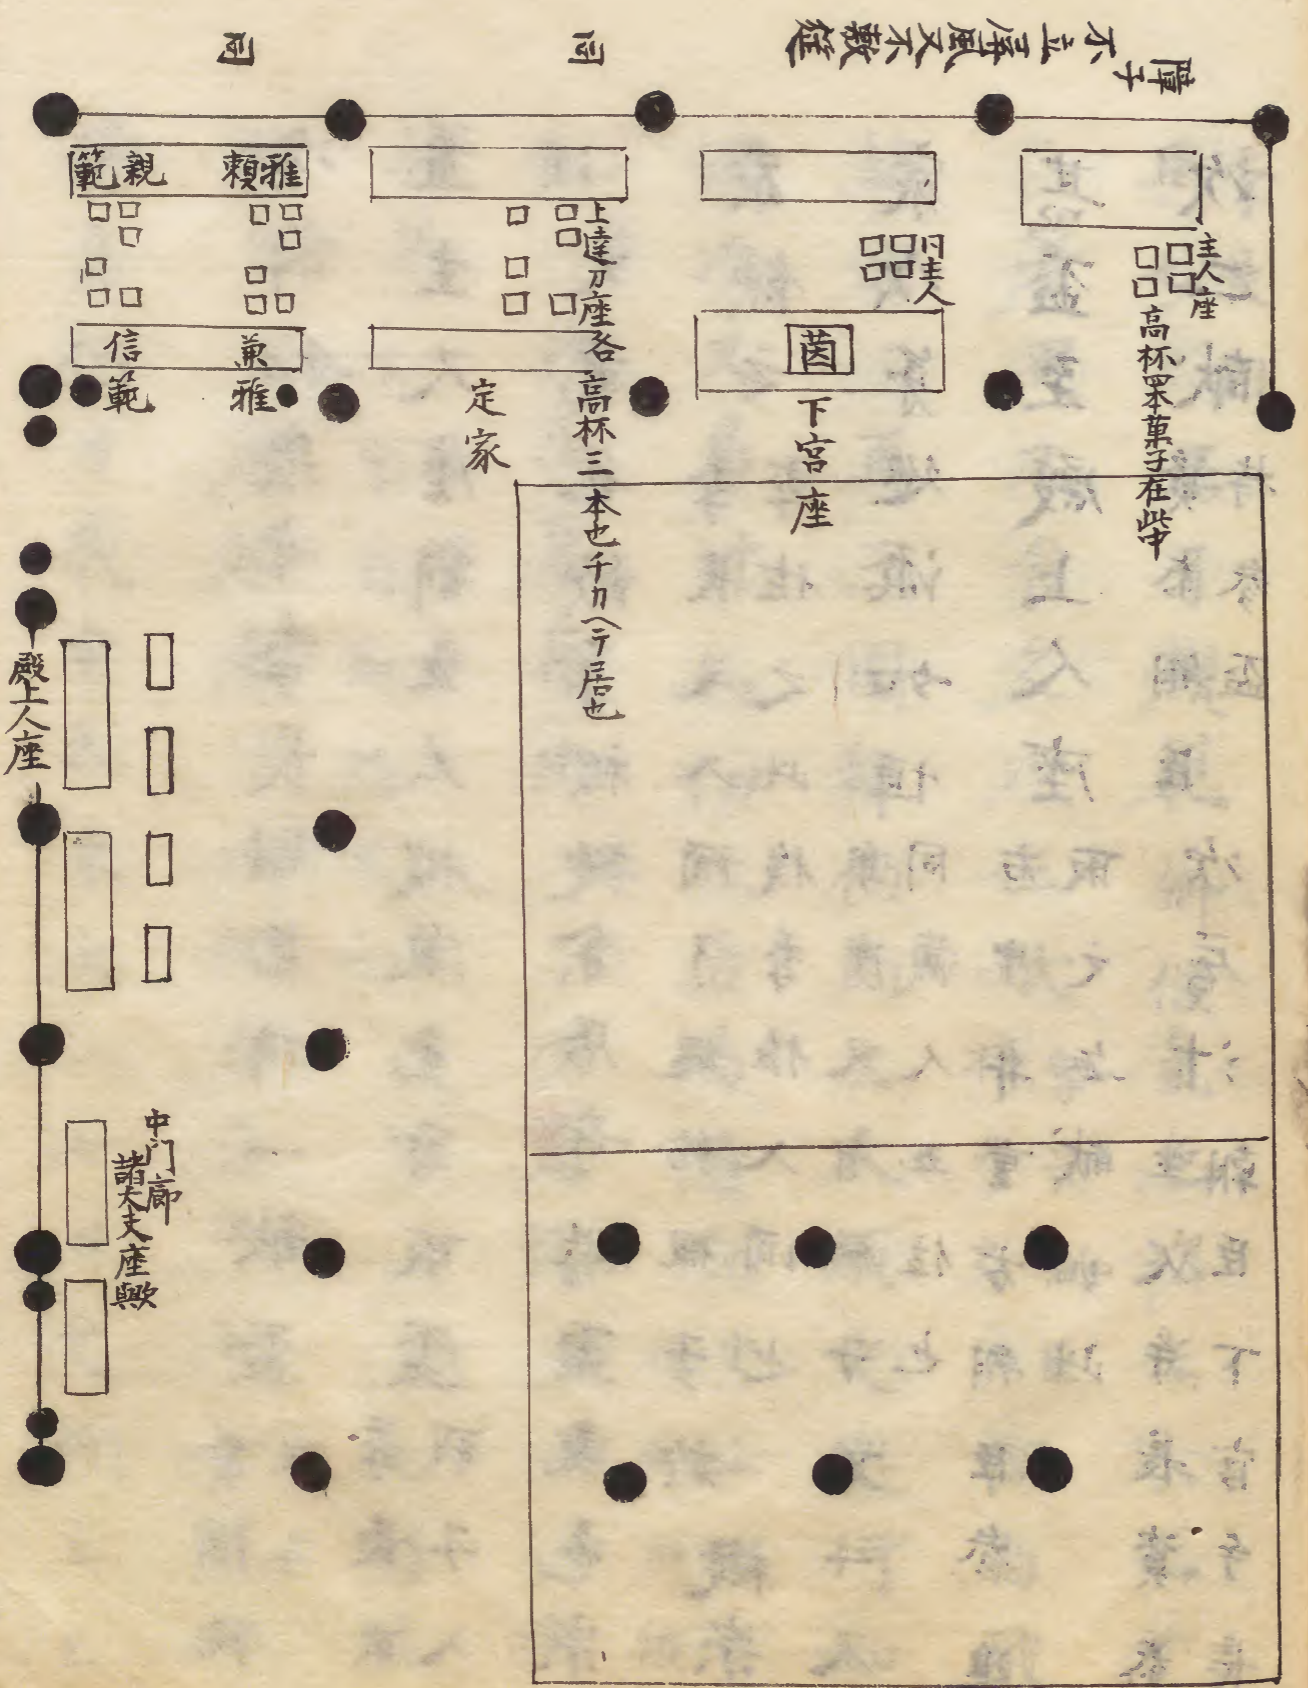 障子
不立屏風又不敷筵
同
同
主人座
高杯四本菓子在此中
同主人
茵
下官座
上達部座各高杯三本也チカヘテ居也
定家
雅頼
親範
兼雅
信範
殿上人座
中门廊
諸大夫座歟